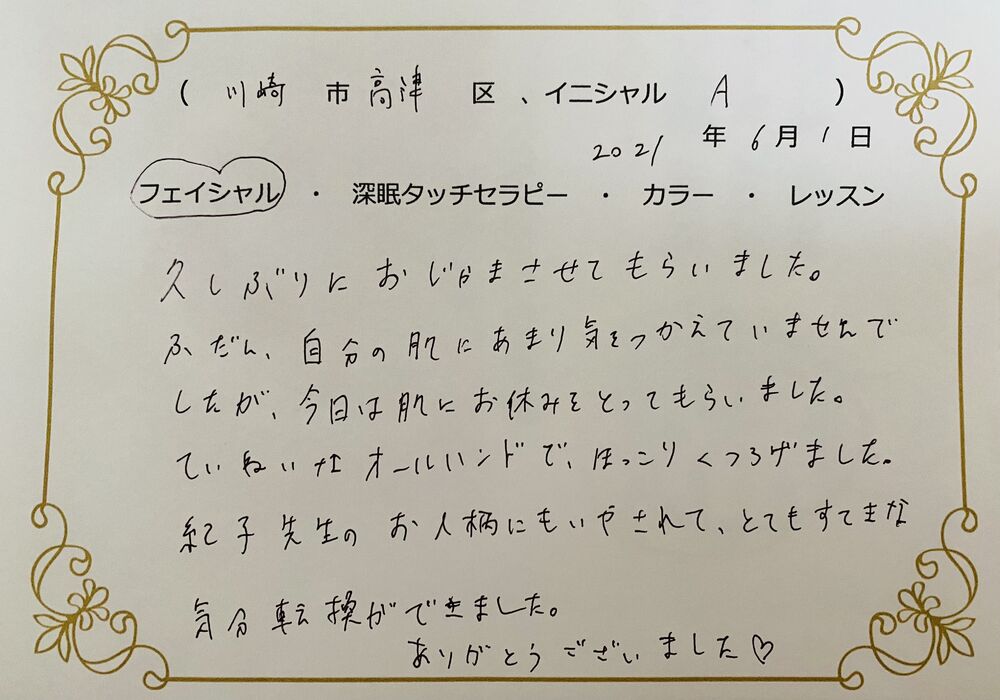 ( 川崎 市 高津 区 、イニシャル A )
2021 年 6 月 1 日
フェイシャル ・ 深眠タッチセラピー ・ カラー ・ レッスン
久しぶりに おじゃまさせてもらいました。
ふだん、自分の肌にあまり気をつかえていませんで
したが、今日は肌にお休みをとってもらいました。
ていねいなオールハンドで、ほっこりくつろげました。
紀子先生の お人柄にもいやされて、とてもすてきな
気分転換ができました。
ありがとうございました♡